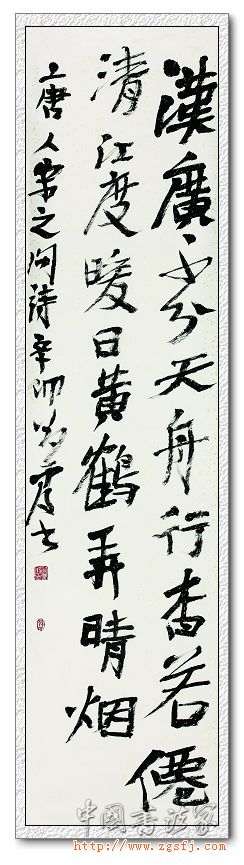 漢廣不分天舟行杳若僊
清江度暖日黄鶴弄晴烟
唐人宋之问詩辛卯
中國書法家
http://www.zgsfj.com